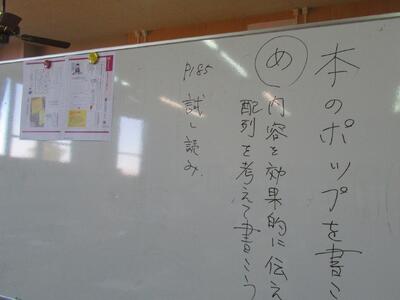 本のポップを書こ
め 内容を効果的に伝え
配列を考えて書こう
P185
試し読み